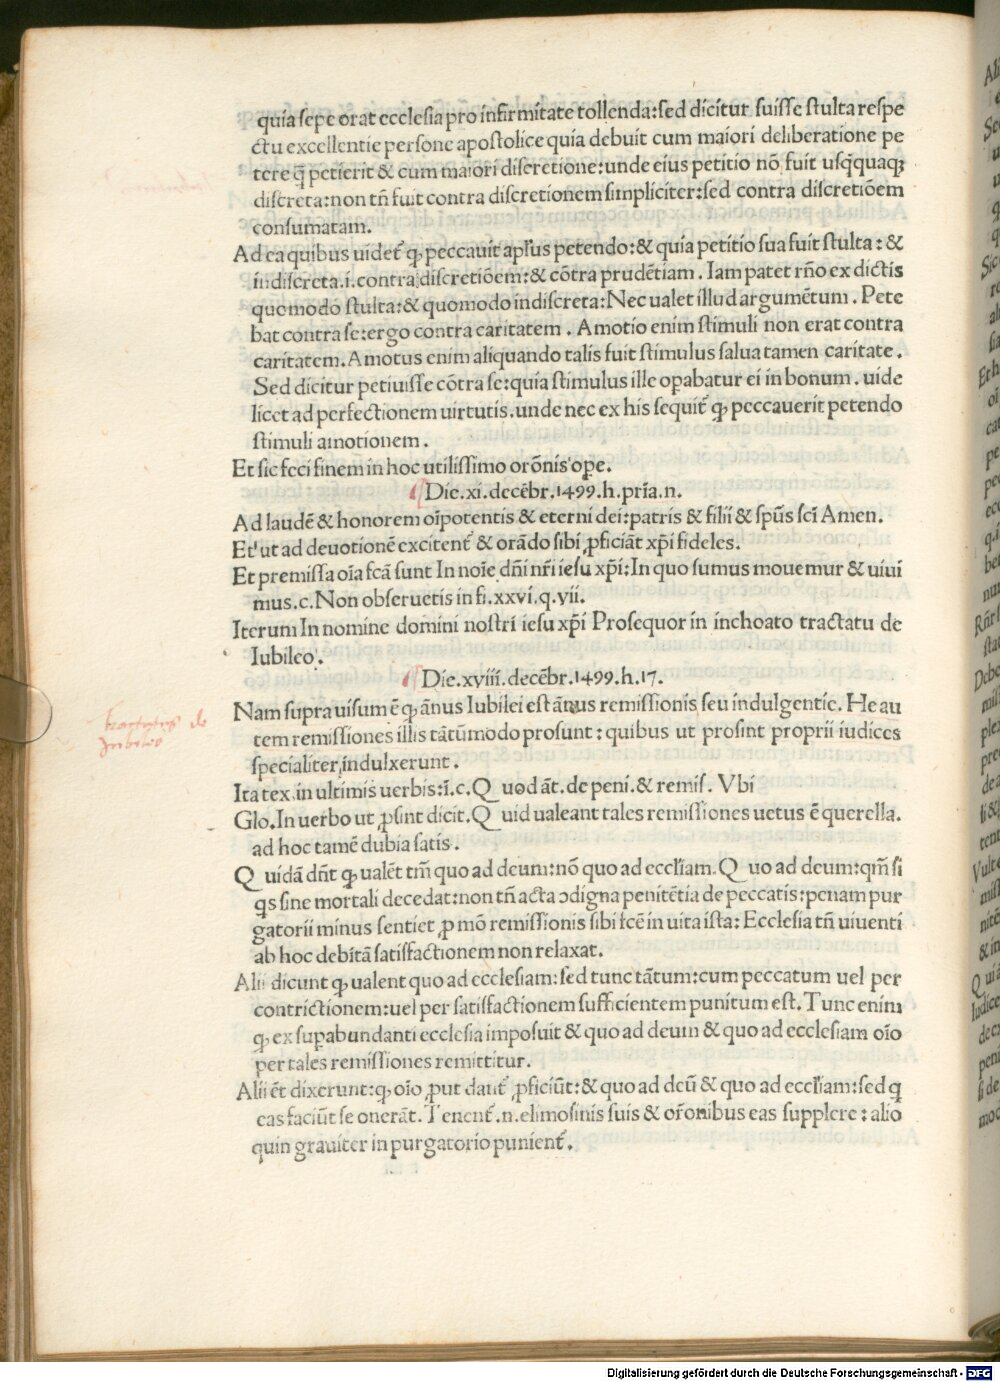 quia sepe orat ecclesia pro infirmitate tollenda:sed dicitur fuisse stulta respe
ctu excellentie persone apostolice quia debuit cum maiori deliberatione pe
tere ꝙ petierit & cum maiori discretione:unde eius petitio nō fuit usq̄quaqꝫ
discreta:non tn̄ fuit contra discretionem simpliciter:sed contra discretiōem
consumatam.
Ad ea quibus uidet᷑ ꝙ peccauit apl'us petendo:& quia petitio sua fuit stulta:&
indiscreta.i.contra discretiōem:& cōtra prudētiam. Iam patet rn̄o ex dictis
quomodo stulta:& quomodo indiscreta:Nec ualet illud argumētum. Pete
bat contra se:ergo contra caritatem. Amotio enim stimuli non erat contra
caritatem. Amotus enim aliquando talis fuit stimulus salua tamen caritate.
Sed dicitur petiuisse cōtra se:quia stimulus ille oꝑabatur ei in bonum. uide
licet ad perfectionem uirtutis.unde nec ex his sequit᷑ ꝙ peccauerit petendo
stimuli amotionem.
Et sic feci finem in hoc utilissimo orōnis oꝑe.
¶Die.xi.decēbr.1499.h.pria̅.n.
Ad laudē & honorem oi̅potentis & eterni dei:patris & filii & sp̄us sc̄i Amen.
Et ut ad deuotionē excitent᷑ & orādo sibi ꝓficiāt xp̄i fideles.
Et premissa oi̅a fc̄a sunt In noi̅e dn̄i nr̄i iesu xp̄i:In quo sumus mouemur & uiui
mus.c.Non obseruetis in fi.xxvi.q.vii.
Iterum In nomine domini nostri iesu xp̄i Prosequor in inchoato tractatu de
Iubileo.
¶Die.xviii.decēbr.1499.h.17.
tractatus de
Iubileo
Nam supra uisum ē ꝙ ānus Iubilei est ānus remissionis seu indulgentie. He au
tem remissiones illis tātūmodo prosunt: quibus ut prosint proprii iudices
specialiter indulxerunt.
Ita tex.in ultimis uerbis:i̅.c.Quod āt.de peni.& remis. Vbi
Glo.In uerbo ut ꝓsint dicit.Quid ualeant tales remissiones uetus ē querella.
ad hoc tamē dubia satis.
Quidā dn̄t ꝙ ualēt tm̄ quo ad deum:nō quo ad eccl'iam.Quo ad deum:qm̄ si
q̇s sine mortali decedat:non tn̄ acta ↄdigna penitētia de peccatis:penam pur
gatorii minus sentiet ꝓ mō remissionis sibi fc̄e in uita ista:Ecclesia tn̄ uiuenti
ab hoc debitā satisfactionem non relaxat.
Alii dicunt ꝙ ualent quo ad ecclesiam:sed tunc tātum:cum peccatum uel per
contrictionem:uel per satisfactionem sufficientem punitum est.Tunc enim
ꝙ ex supabundanti ecclesia imposuit & quo ad deum & quo ad ecclesiam oi̅o
per tales remissiones remittitur.
Alii ēt dixerunt:ꝙ oi̅o ꝓut dant᷑ ꝓficiūt:& quo ad deū & quo ad eccl'iam:sed q̇
eas faciūt se onerāt.Tenent᷑.n.elimosinis suis & or̄onibus eas supplere:alio
quin grauiter in purgatorio punient᷑.
Digitalisierung gefördert durch die Deutsche Forschungsgemeinschaft - DFG